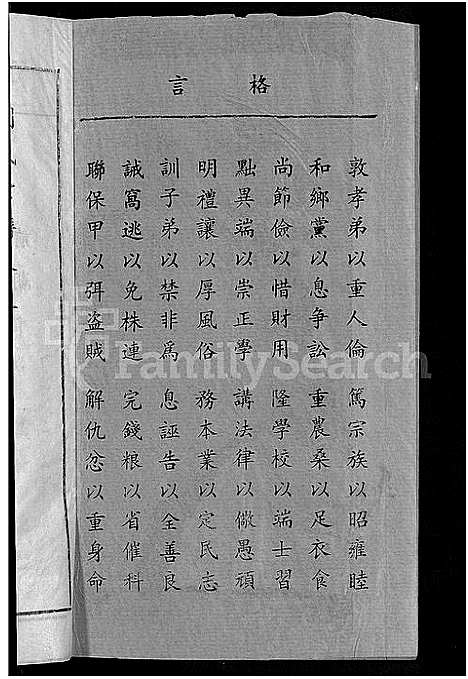 格言
敦孝弟以重人倫 篤宗族以昭雍睦
和鄉黨以息爭訟 重農桑以足衣食
尚節儉以惜財用 隆學校以端士習
黜異端以崇正學 講法律以儆愚頑
明禮讓以厚風俗 務本業以定民志
訓子弟以禁非為 息誣告以全善良
誡窩逃以免株連 完錢糧以省催科
聯保甲以弭盜賊 解仇忿以重身命
FamilySearch